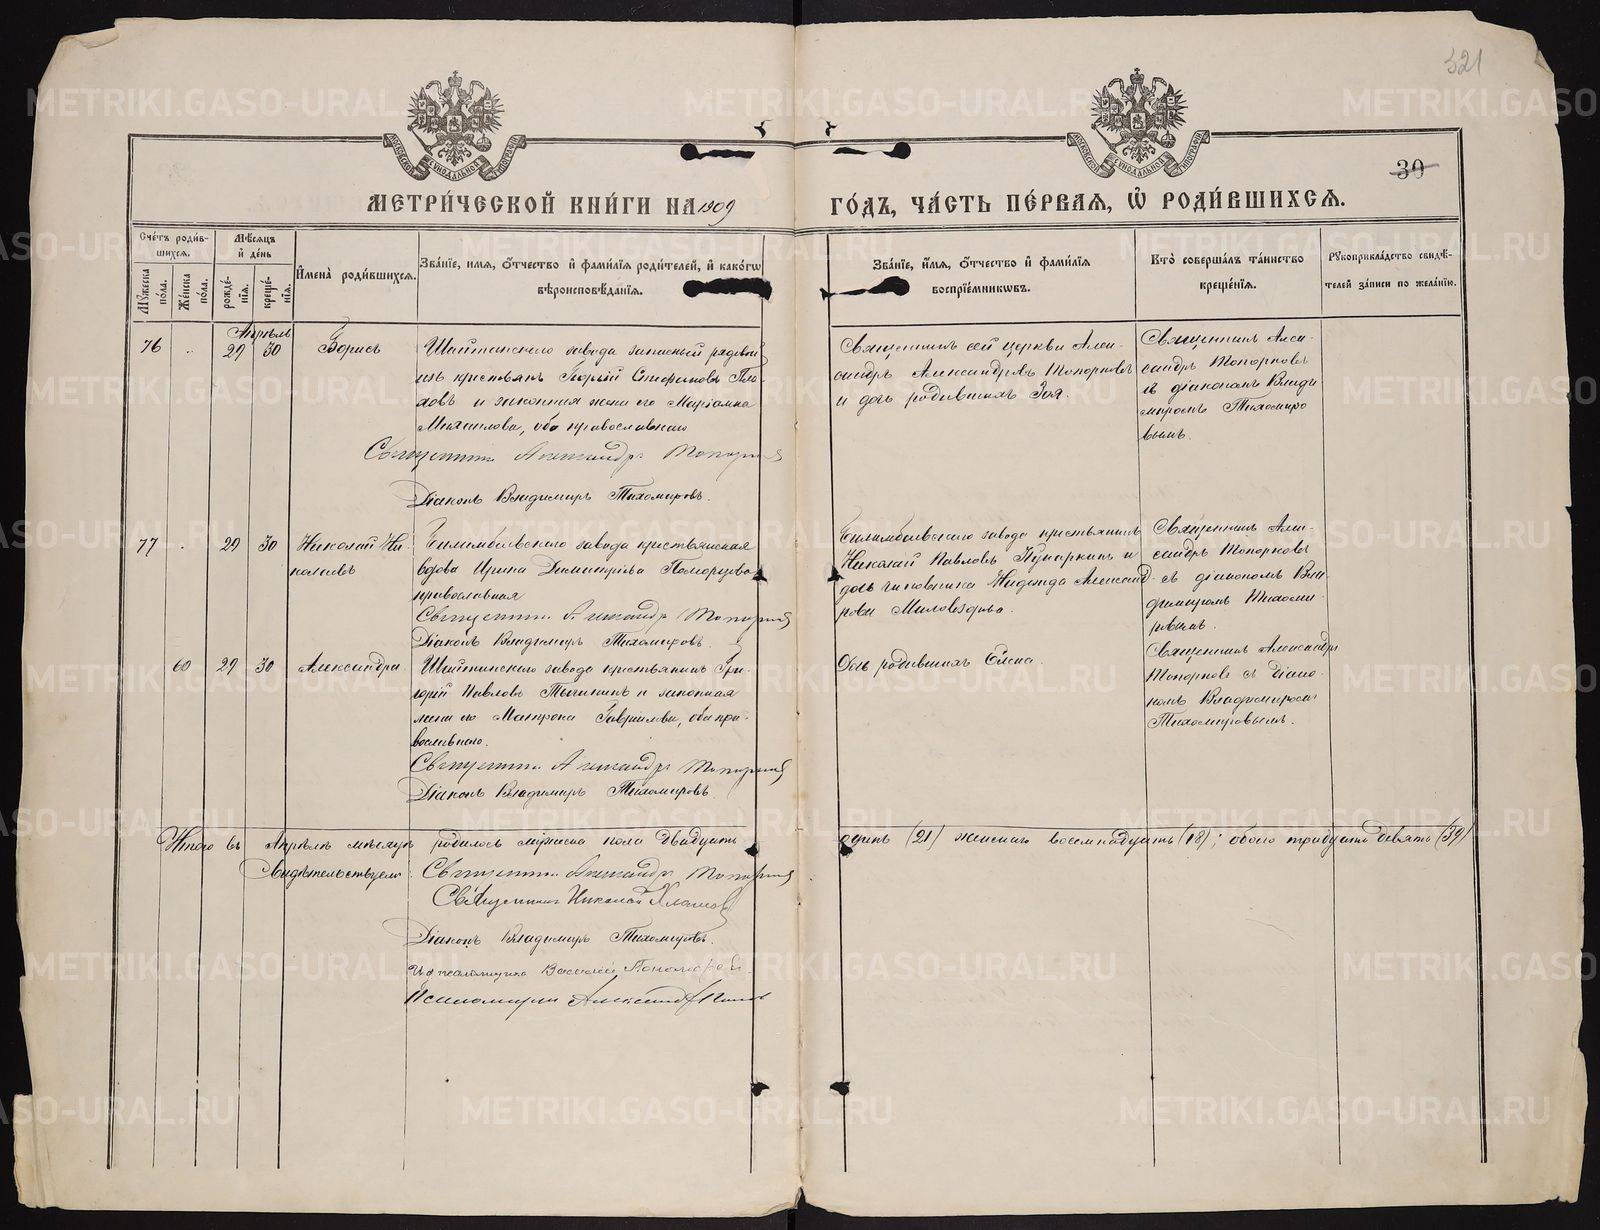 321
30
МЕТРИ́ЧЕСКОЙ КНИ́ГИ НА 1909 ГО́ДЪ, ЧА́СТЬ ПЕ́РВАЯ, Ѡ РОДИ́ВШИХСЯ.
Сче́тъ роди́в-
шихся.
Мѣ́сяцъ
и де́нь
Му́жеска по́ла.
Же́нска по́ла.
рожде́-
нія.
креще́-
нія.
Имена̀ роди́вшихся.
Зва́ніе, имя, о́тчество и фами́лія роди́телей, и како́гѡ
вѣроисповѣ́данія.
Зва́ніе, и́мя, о́тчество и фами́лія
воспріе́мниковъ.
Кто̀ соверша́лъ та́инство
креще́нія.
Рукоприкла́дство свидѣ́-
телей за́писи по жела́нію.
Апрѣль
76 29 30 Борисъ
Шайтанскаго завода запасный рядовой
изъ крестьянъ Георгій Стефановъ
и законная жена его Маріамна
Михаилова, оба православнаго
Священникъ Александръ Топорковъ
Діаконъ Владимиръ Тихомировъ.
Священникъ сей церкви Алек-
сандръ Александровъ Топорковъ
и дочь родившихъ Зоя.
Священникъ Алек-
сандръ Топорковъ
съ діакономъ Влади
міромъ Тихомиро
вымъ.
77 29 30 Николай Ни-
колаевъ
Билимбаевскаго завода крестьянская
вдова Ирина Димитріева Поморцева
православная
Священникъ Александръ Топорковъ
Діаконъ Владимиръ Тихомировъ.
Билимбаевскаго завода крестьянинъ
Николай Павловъ и
дочь чиновника Надежда Александ-
рова Миловзорова.
Священникъ Алек-
сандръ Топорковъ
съ діакономъ Вла-
димиромъ Тихоми-
ровымъ.
60 29 30 Александра
Шайтанскаго завода крестьянинъ Гри-
горій Павловъ и законная
жена его Матрона Гавриилова, оба пра-
вославнаго.
Священникъ Александръ Топорковъ
Діаконъ Владимиръ Тихомировъ.
Дочь родившихъ Елена.
Священникъ Александръ
Топорковъ съ діако-
номъ Владимиромъ
Тихомировымъ.
Итого въ Апрѣлѣ мѣсяцѣ родилось мужеска пола двадцать одинъ (21) женскаго восемнадцать (18); обоего тридцать девять (39)
Свидѣтельствуемъ: Священникъ Александръ Топорковъ
Священникъ Николай
Діаконъ Владимиръ Тихомировъ.
Псаломщикъ Василій Пономаревъ
Псаломщикъ Александръ Поповъ
METRIKI.GASO-URAL.RU